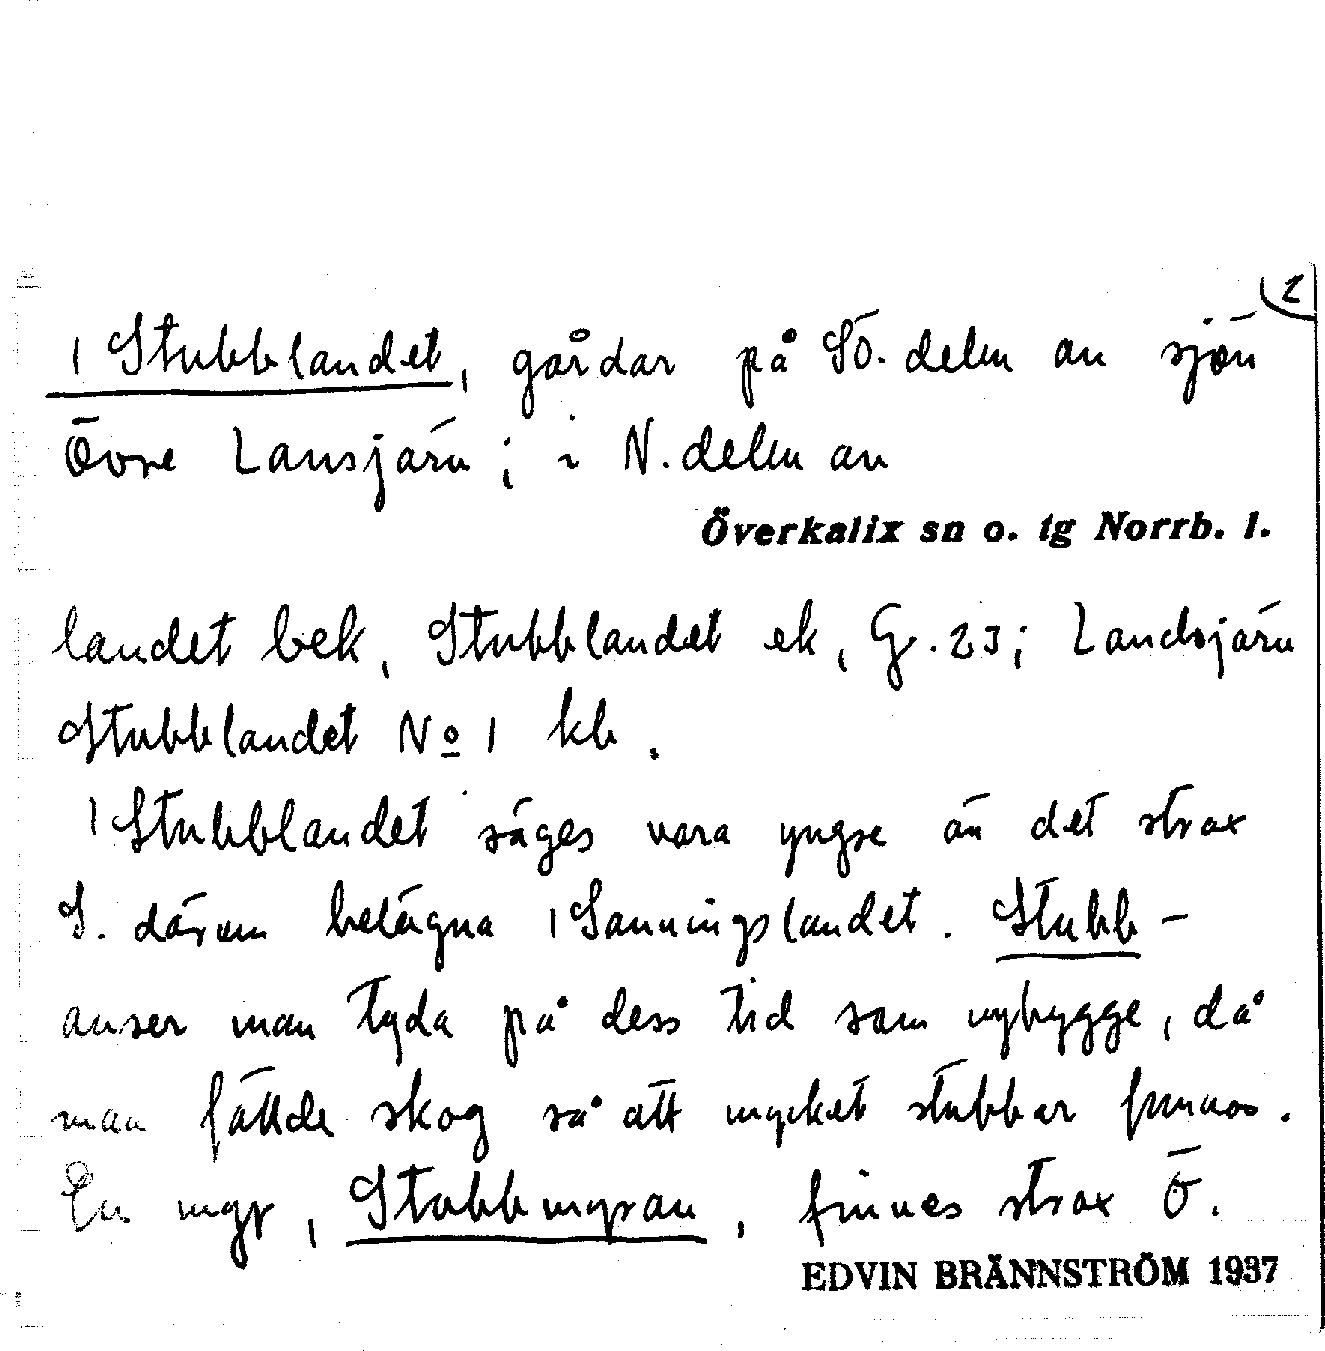 2
1 Stubblandet, gårdar på SÖ. delen av sjön
Övre Lansjärv; i N. delen av
Överkalix sn o. tg Norrb. l.
landet bek, Stubblandet ek, G. 23; Landsjärv
Stubblandet No 1 kb.
1 Stubblandet säges vara yngre än det strax
S. därom belägna 1 Sanningslandet. Stubb-
anser man tyda på dess tid som nybygge, då
man fällde skog så att mycket stubbar funnos.
En myr, Stubbmyran, finnes strax Ö.
EDVIN BRÄNNSTRÖM 1937